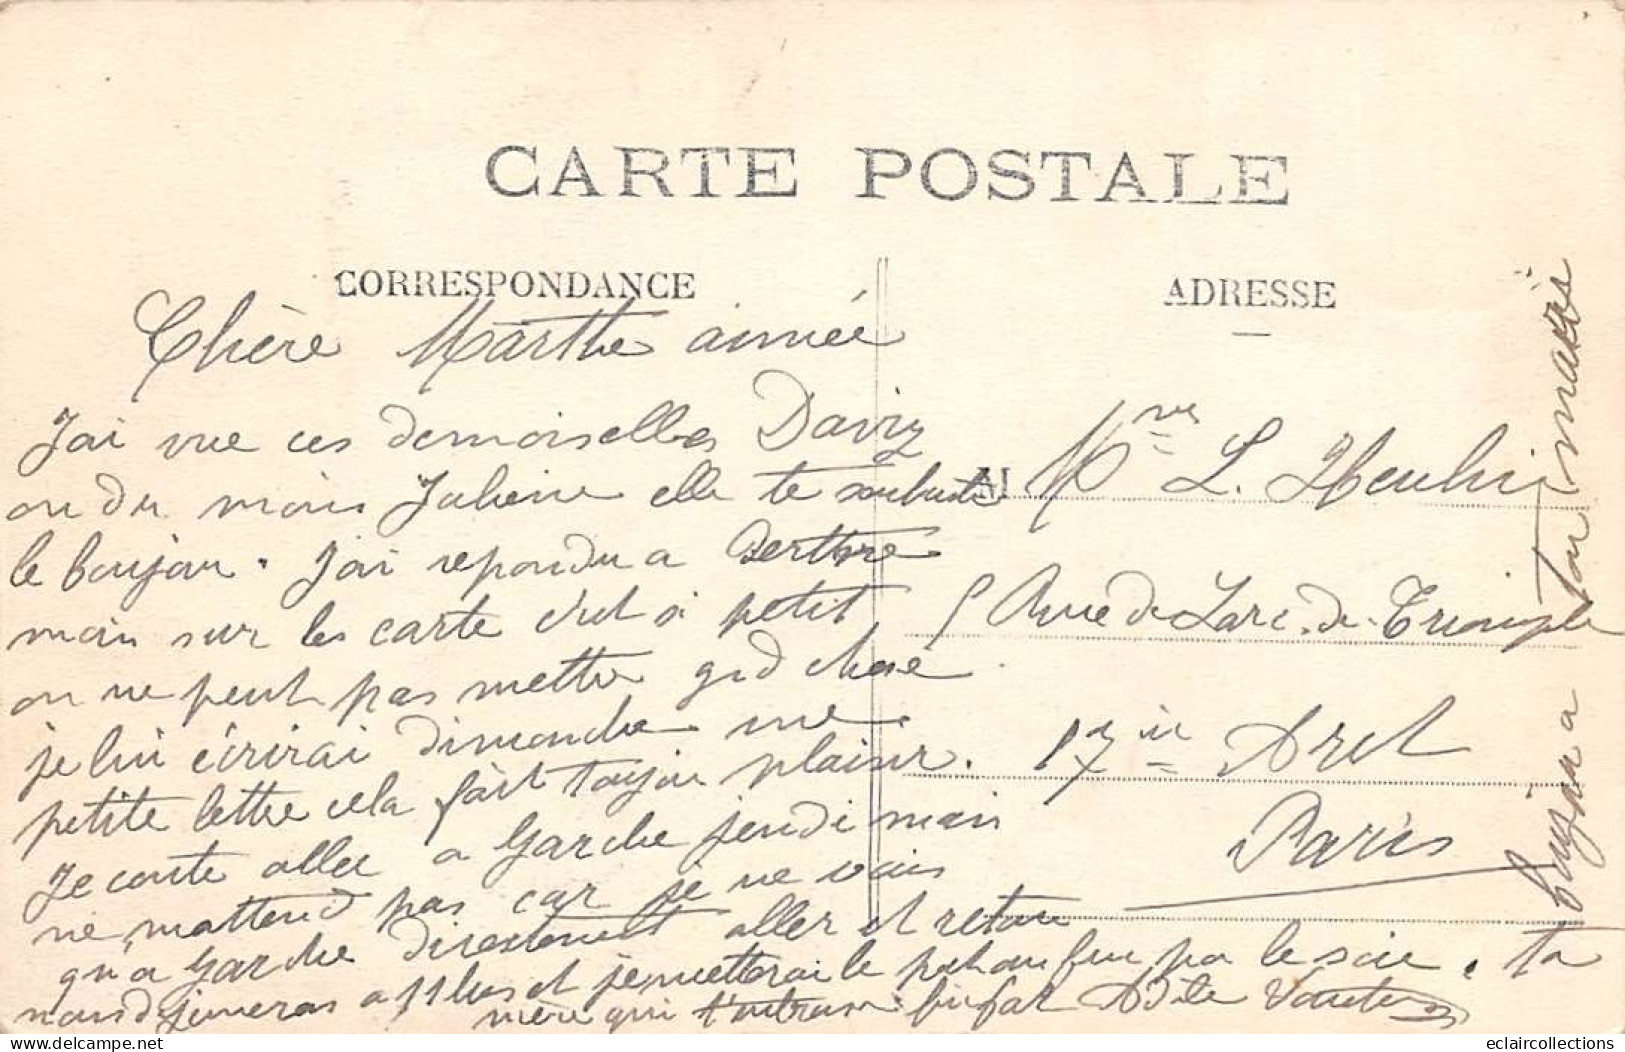 CARTE POSTALE
CORRESPONDANCE
Chère Marthe aimée
J'ai vue ces demoiselles Daviz
ou du moins Juliene elle te souhaite
le bonjour. J'ai repondu a Berthe
mais sur les carte c'est si petit
on ne peut pas mettre grd chose
je lui écrirai dimanche une
petite lettre cela fait toujou plaisir.
Je conte aller a Garche jeudi mais
ne m'attend pas car je ne vais
qu'a Garche directement aller et retou
nous déjeuneras a 11 hes et je metterai le pot au feu pa le soir. ta
mère qui t'
ADRESSE
M
Mme L. Heulin
5 Rue de Larc. de. Triomphe
17 ie Arct
Paris
ton
eclaircollections